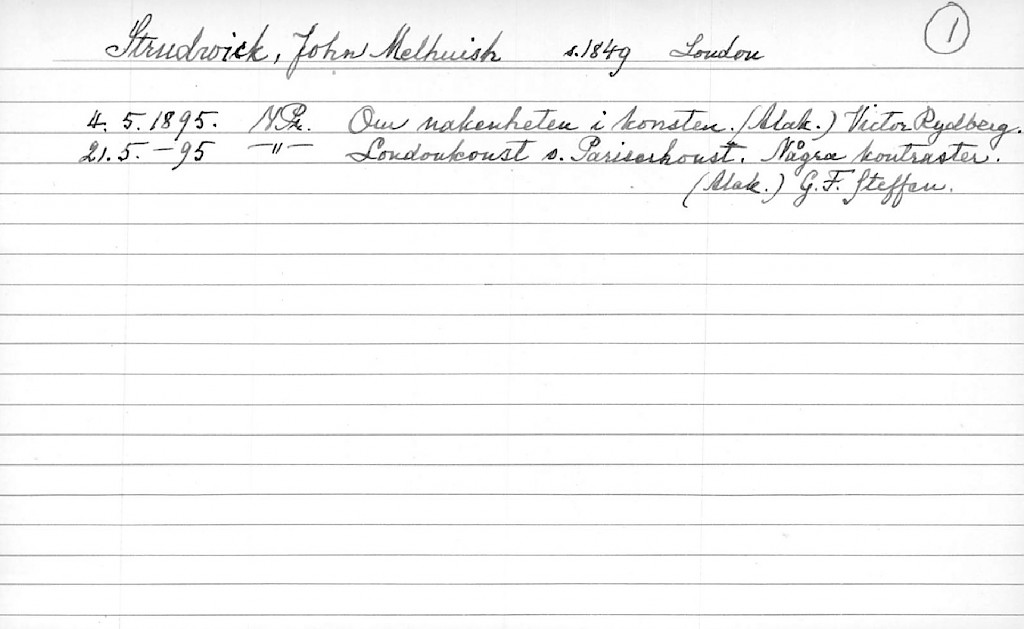 Strudwick, John Melhuish s.1849 London 1
4. 5. 1895. N.Pr. Om nakenheten i konsten. (Alak.) Victor Rydberg.
21. 5. -95 -"- Londonkonst o. Pariserkonst. Några kontraster.
(Alak.) G. F. Steffen.